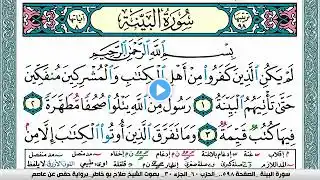 سُورَةُ الْبَيِّنَةِ
بِسْمِ اللَّهِ الرَّحْمَٰنِ الرَّحِيمِ
لَمْ يَكُنِ الَّذِينَ كَفَرُوا مِنْ أَهْلِ الْكِتَابِ وَالْمُشْرِكِينَ مُنفَكِّينَ
حَتَّىٰ تَأْتِيَهُمُ الْبَيِّنَةُ ١ رَسُولٌ مِّنَ اللَّهِ يَتْلُو صُحُفًا مُّطَهَّرَةً ٢
فِيهَا كُتُبٌ قَيِّمَةٌ ٣ وَمَا تَفَرَّقَ الَّذِينَ أُوتُوا الْكِتَابَ إِلَّا مِن
سورة البينة . الصفحة ٥٩٨ . الحزب ٦٠ . الجزء ٣٠ . بصوت الشيخ صلاح بو خاطر . برواية حفص عن عاصم